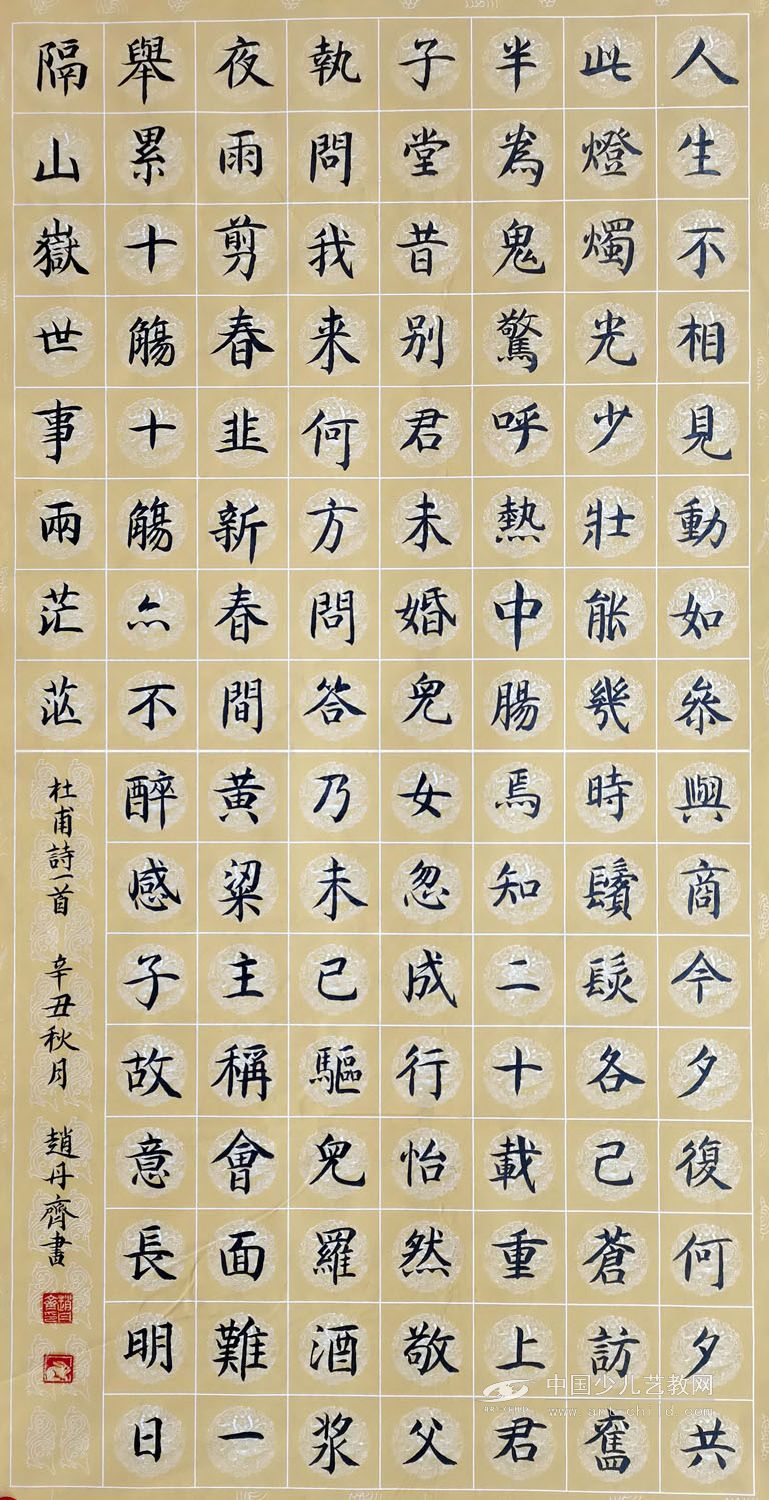 人生不相見動如參與商今夕復何夕共
此燈燭光少壯能幾時鬢髮各已蒼訪舊
半為鬼驚呼熱中腸焉知二十載重上君
子堂昔别君未婚兒女忽成行怡然敬父
執問我来何方問答乃未已驅兒羅酒漿
夜雨剪春韭新春間黄粱主稱會面難一
舉累十觴十觴亦不醉感子故意長明日
隔山嶽世事兩茫茫
杜甫詩一首 辛丑秋月 趙丹齊書
中国少儿艺教网
www.art-child.com